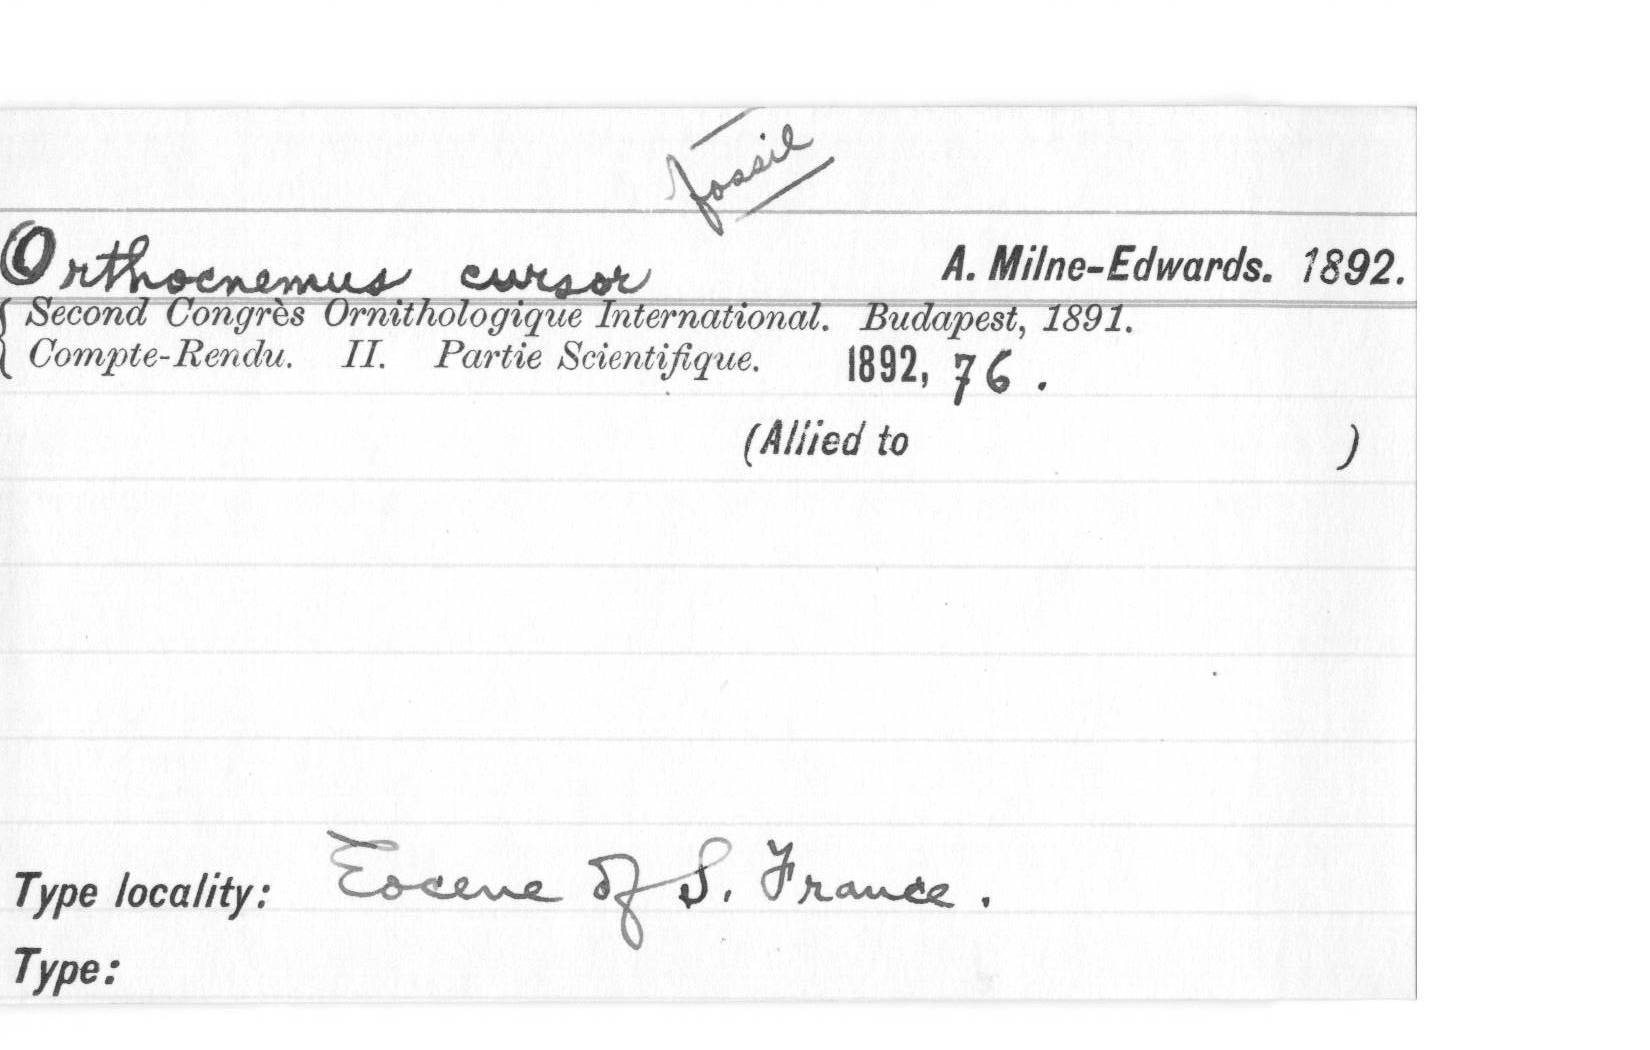 fossil
Orthocnemus cursor A. Milne-Edwards. 1892.
Second Congrès Ornithologique International. Budapest, 1891.
Compte-Rendu. II. Partie Scientifique. 1892, 76.
(Allied to )
Type locality: Eocene of S. France.
Type: